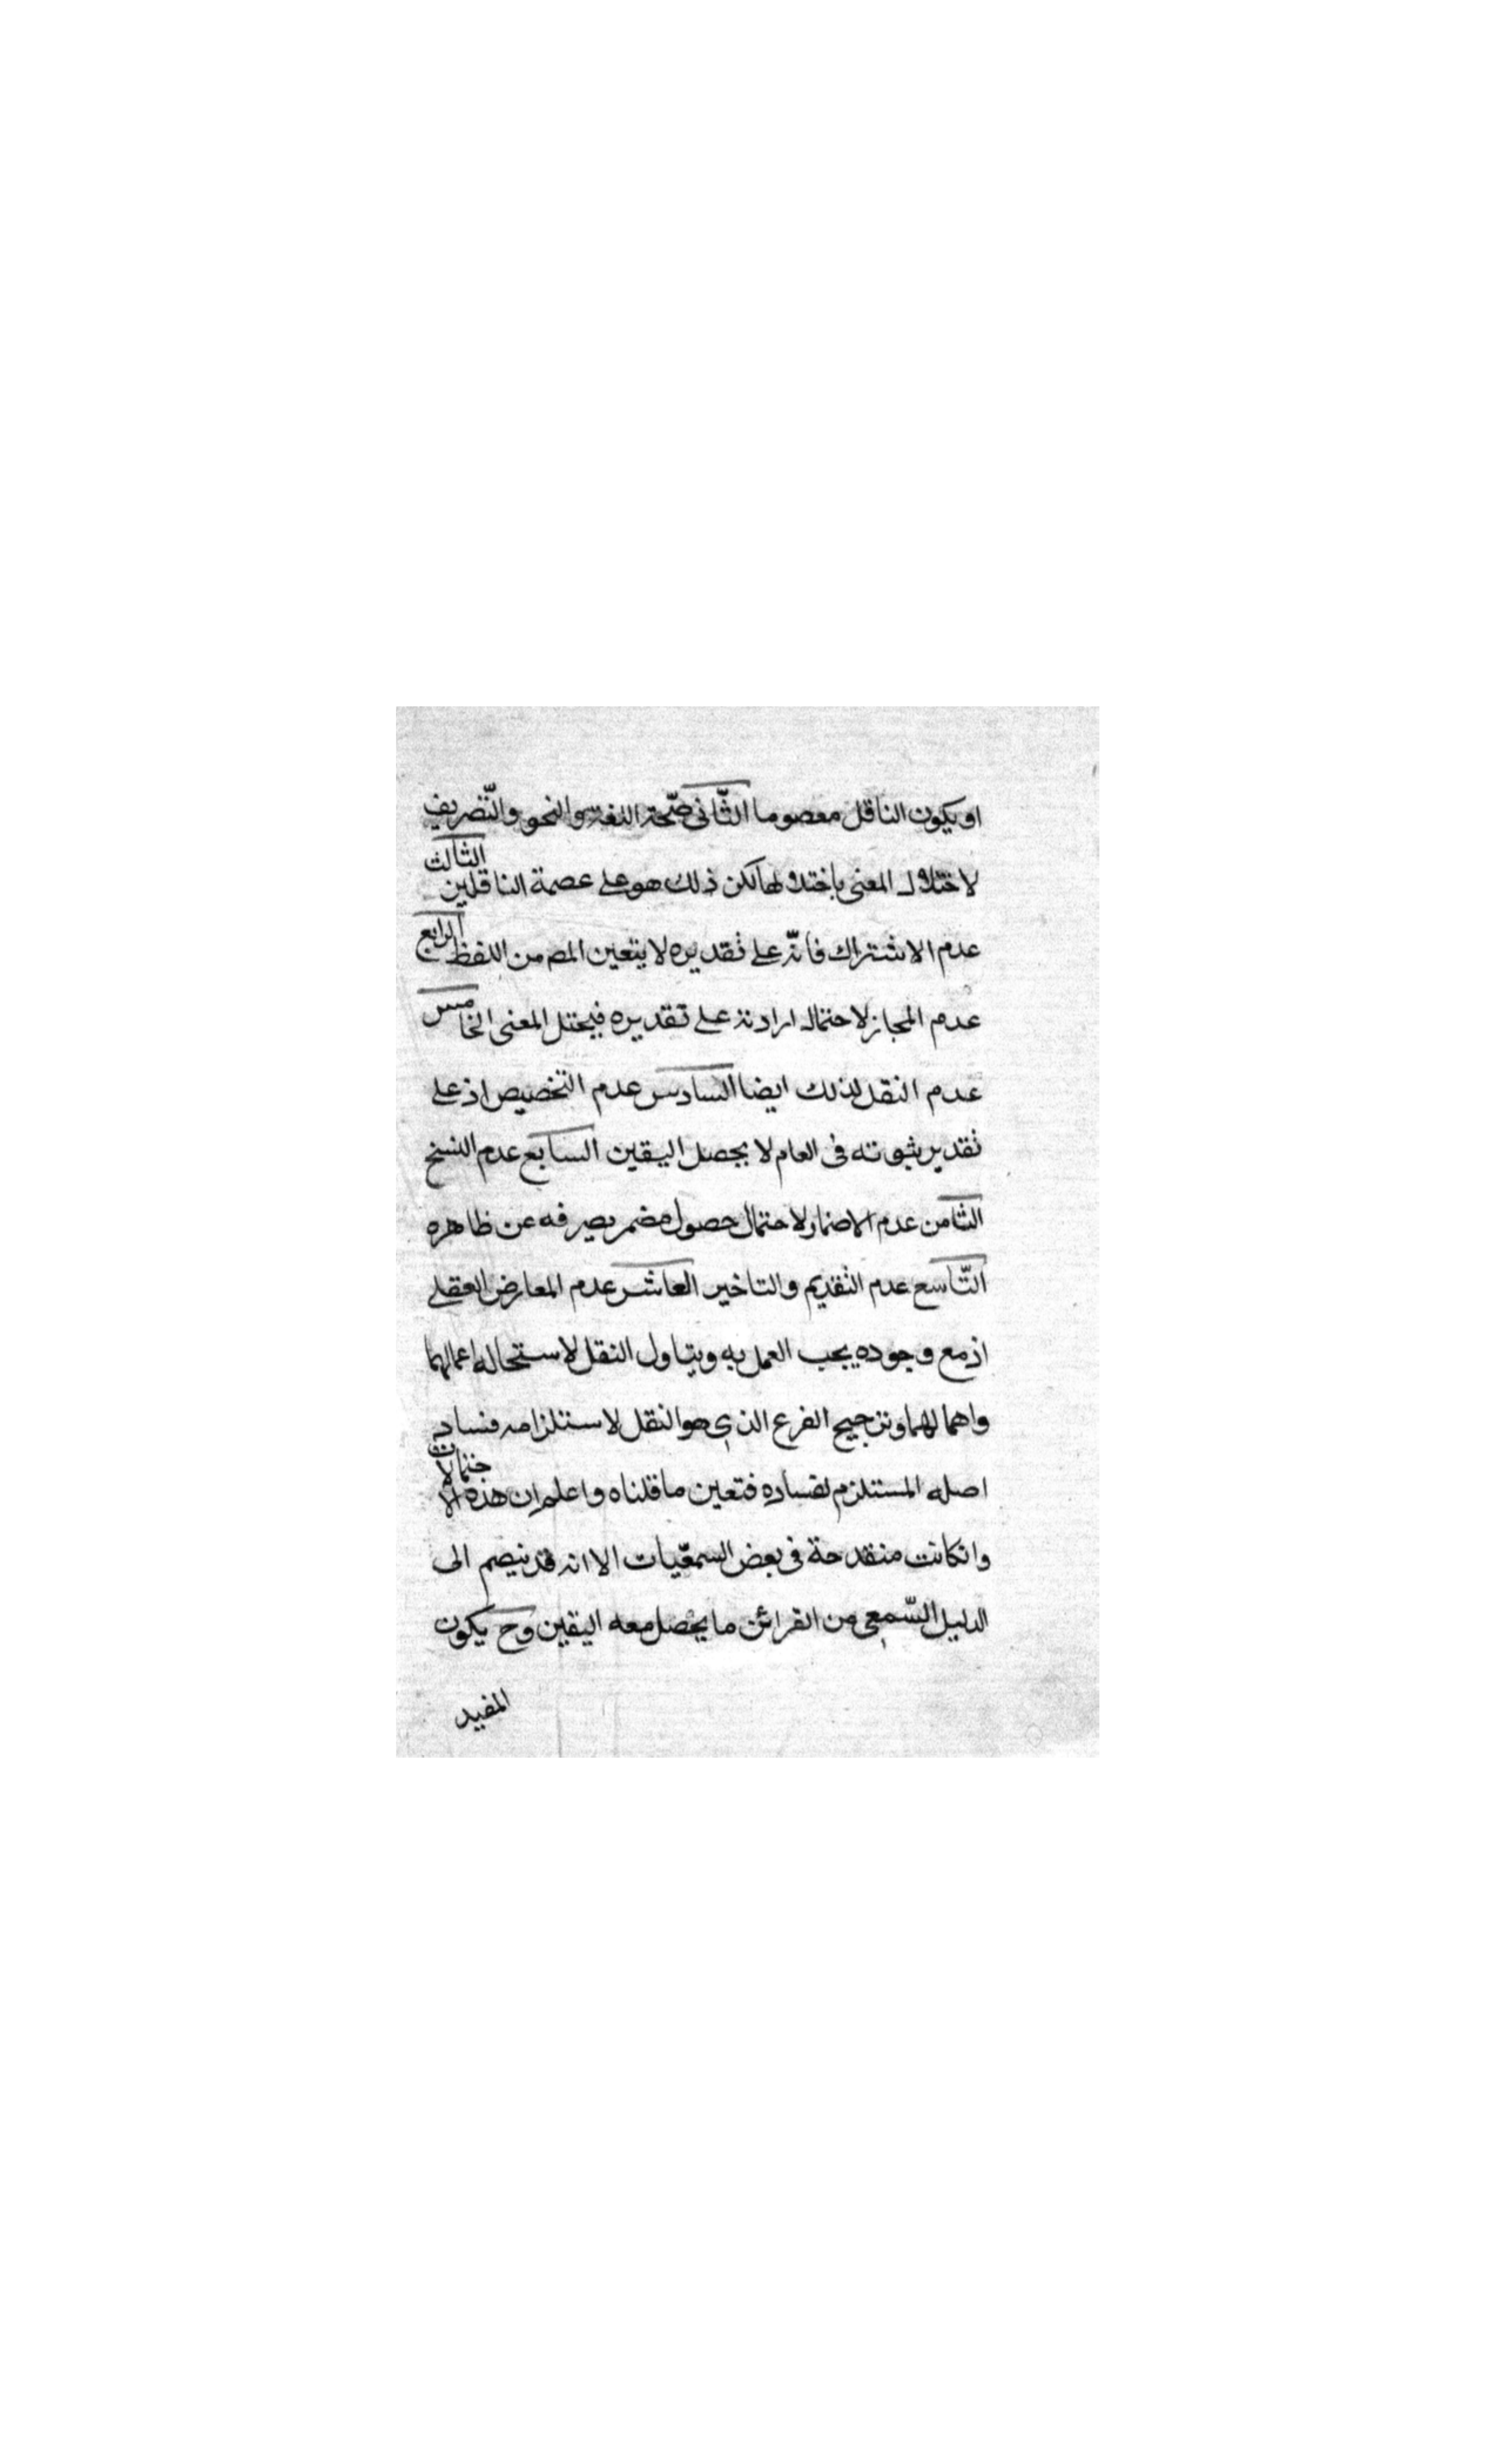 او يكون الناقل معصوما الثّانى صّحة اللغة والنحو والتّصريف
لاختلال المعنى باختلالها لكن ذلك هو على عصمة الناقلين الثالث
عدم الاشتراك فانّه على تقديره لا يتعين المص من اللفظ الرابع
عدم المجاز لاحتمال ارادته على تقديره فيختل المعنى الخامس
عدم النقل لذلك ايضا السادس عدم التخصيص اذ على
تقدير ثبوته فى العام لا يحصل اليقين السابع عدم النسخ
الثامن عدم الاضمار لاحتمال حصول مضمر يصرفه عن ظاهره
التّاسع عدم التقديم والتاخير العاشر عدم المعارض العقلى
اذ مع وجوده يجب العمل به ويتاول النقل لاستحاله اعمالهما
واهمالهما وترجيح الفرع الذى هو النقل لاستلزامه فساد
اصله المستلزم لفساده فتعين ما قلناه واعلم ان هذه الاحتمالات
وانكانت منقدحة فى بعض السمعيّات الا انه قد ينضم الى
الدليل السّمعى من القرائن ما يحصل معه اليقين وح يكون
المفيد